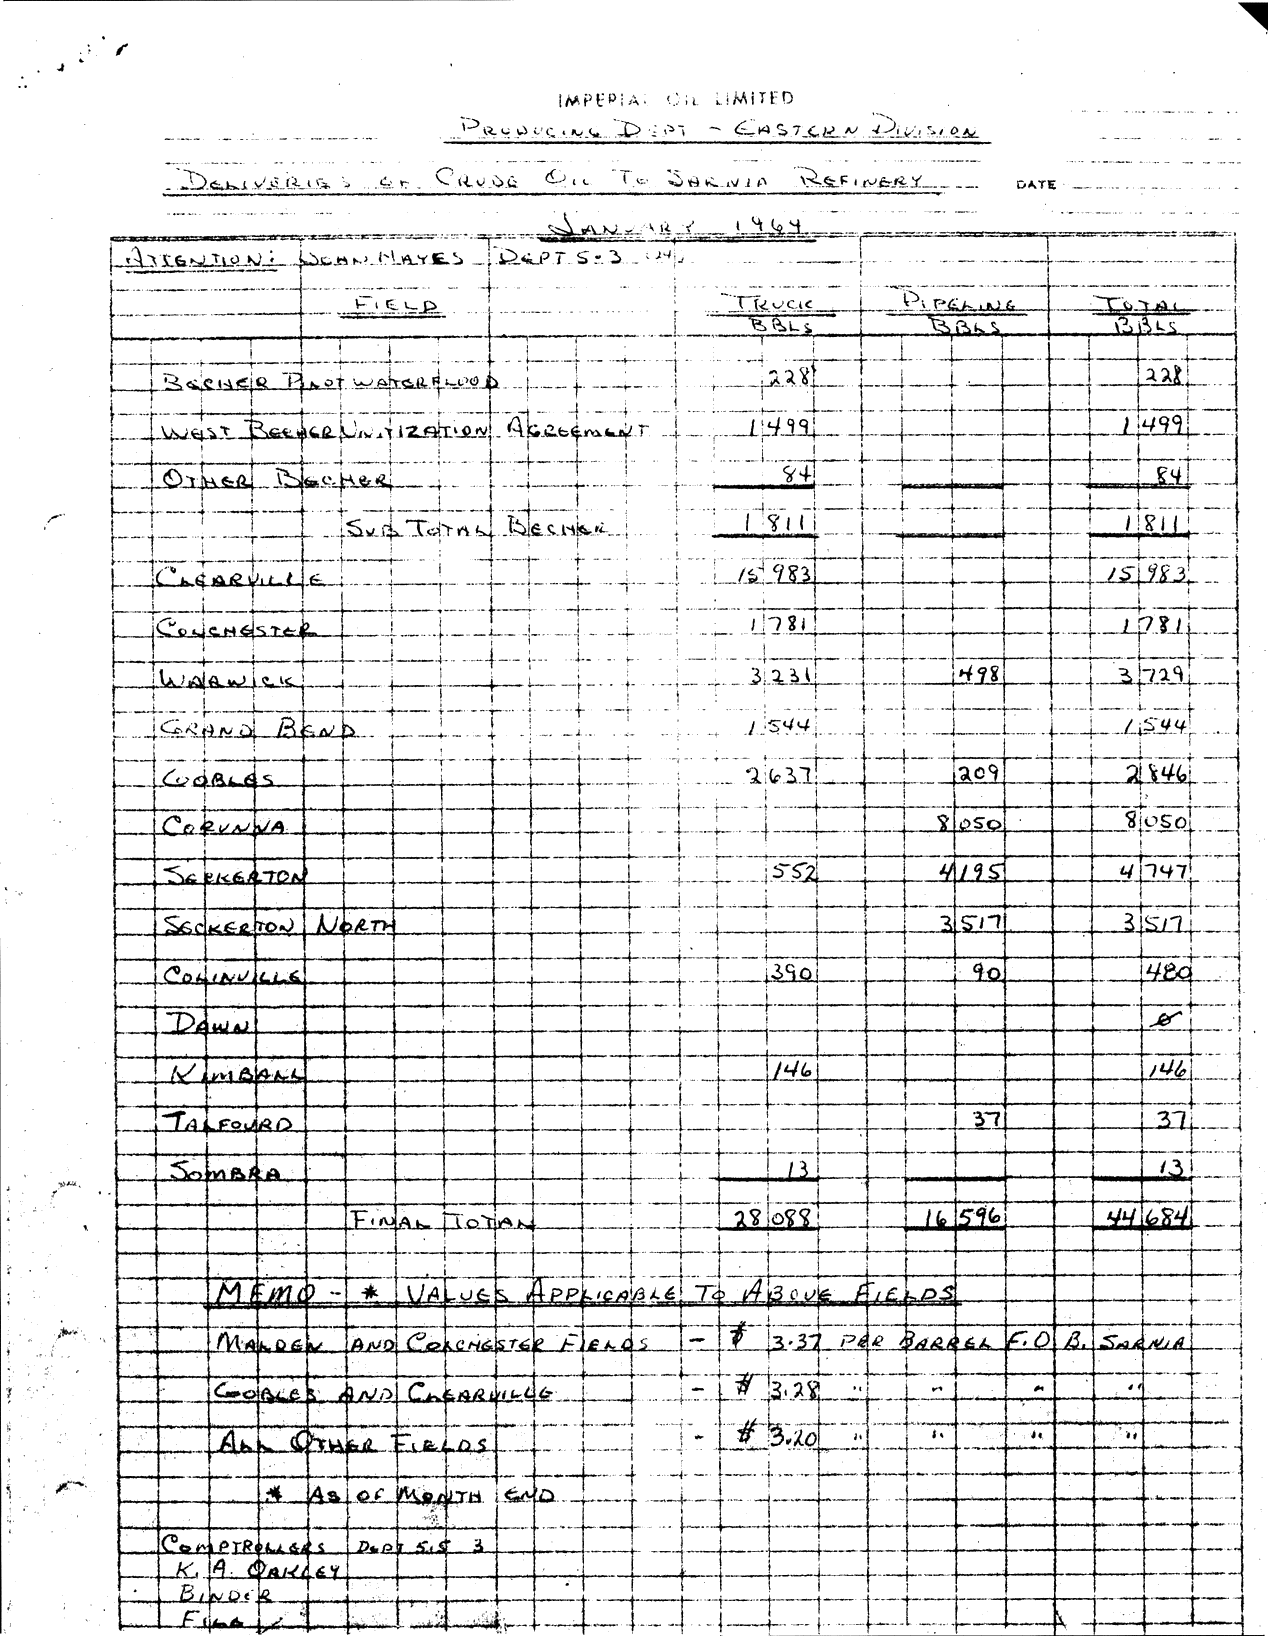 IMPERIAL OIL LIMITED
PRODUCING DEPT - EASTERN DIVISION
DELIVERIES OF CRUDE OIL TO SARNIA REFINERY DATE
JANUARY 1964
ATTENTION: DEAN HAYES DEPT 5.3
FIELD TRUCK PIPELINE TOTAL
BBLS BBLS BBLS
BECHER PILOT WATERFLOOD 228 228
WEST BECHER UNITIZATION AGREEMENT 1 499 1 499
OTHER BECHER 84 84
SUB TOTAL BECHER 1 811 1 811
CLEARVILLE 15 983 15 983
COLCHESTER 1 781 1 781
WARWICK 3 231 498 3 729
GRAND BEND 1 544 1 544
GOBLES 2 637 209 2 846
CORUNNA 8 050 8 050
SECKERTON 552 4 195 4 747
SECKERTON NORTH 3 517 3 517
COLINVILLE 390 90 480
DAWN 0
KIMBALL 146 146
TALFOURD 37 37
SOMBRA 13 13
FINAL TOTAL 28 088 16 596 44 684
MEMO - * VALUES APPLICABLE TO ABOVE FIELDS
MALDEN AND COLCHESTER FIELDS - $ 3.37 PER BARREL F.O.B. SARNIA
GOBLES AND CLEARVILLE - $ 3.28 " " " "
ALL OTHER FIELDS - $ 3.20 " " " "
* AS OF MONTH END
COMPTROLLERS DEPT 5.5 3
K. A. OAKLEY
BINDER
FILE ✓